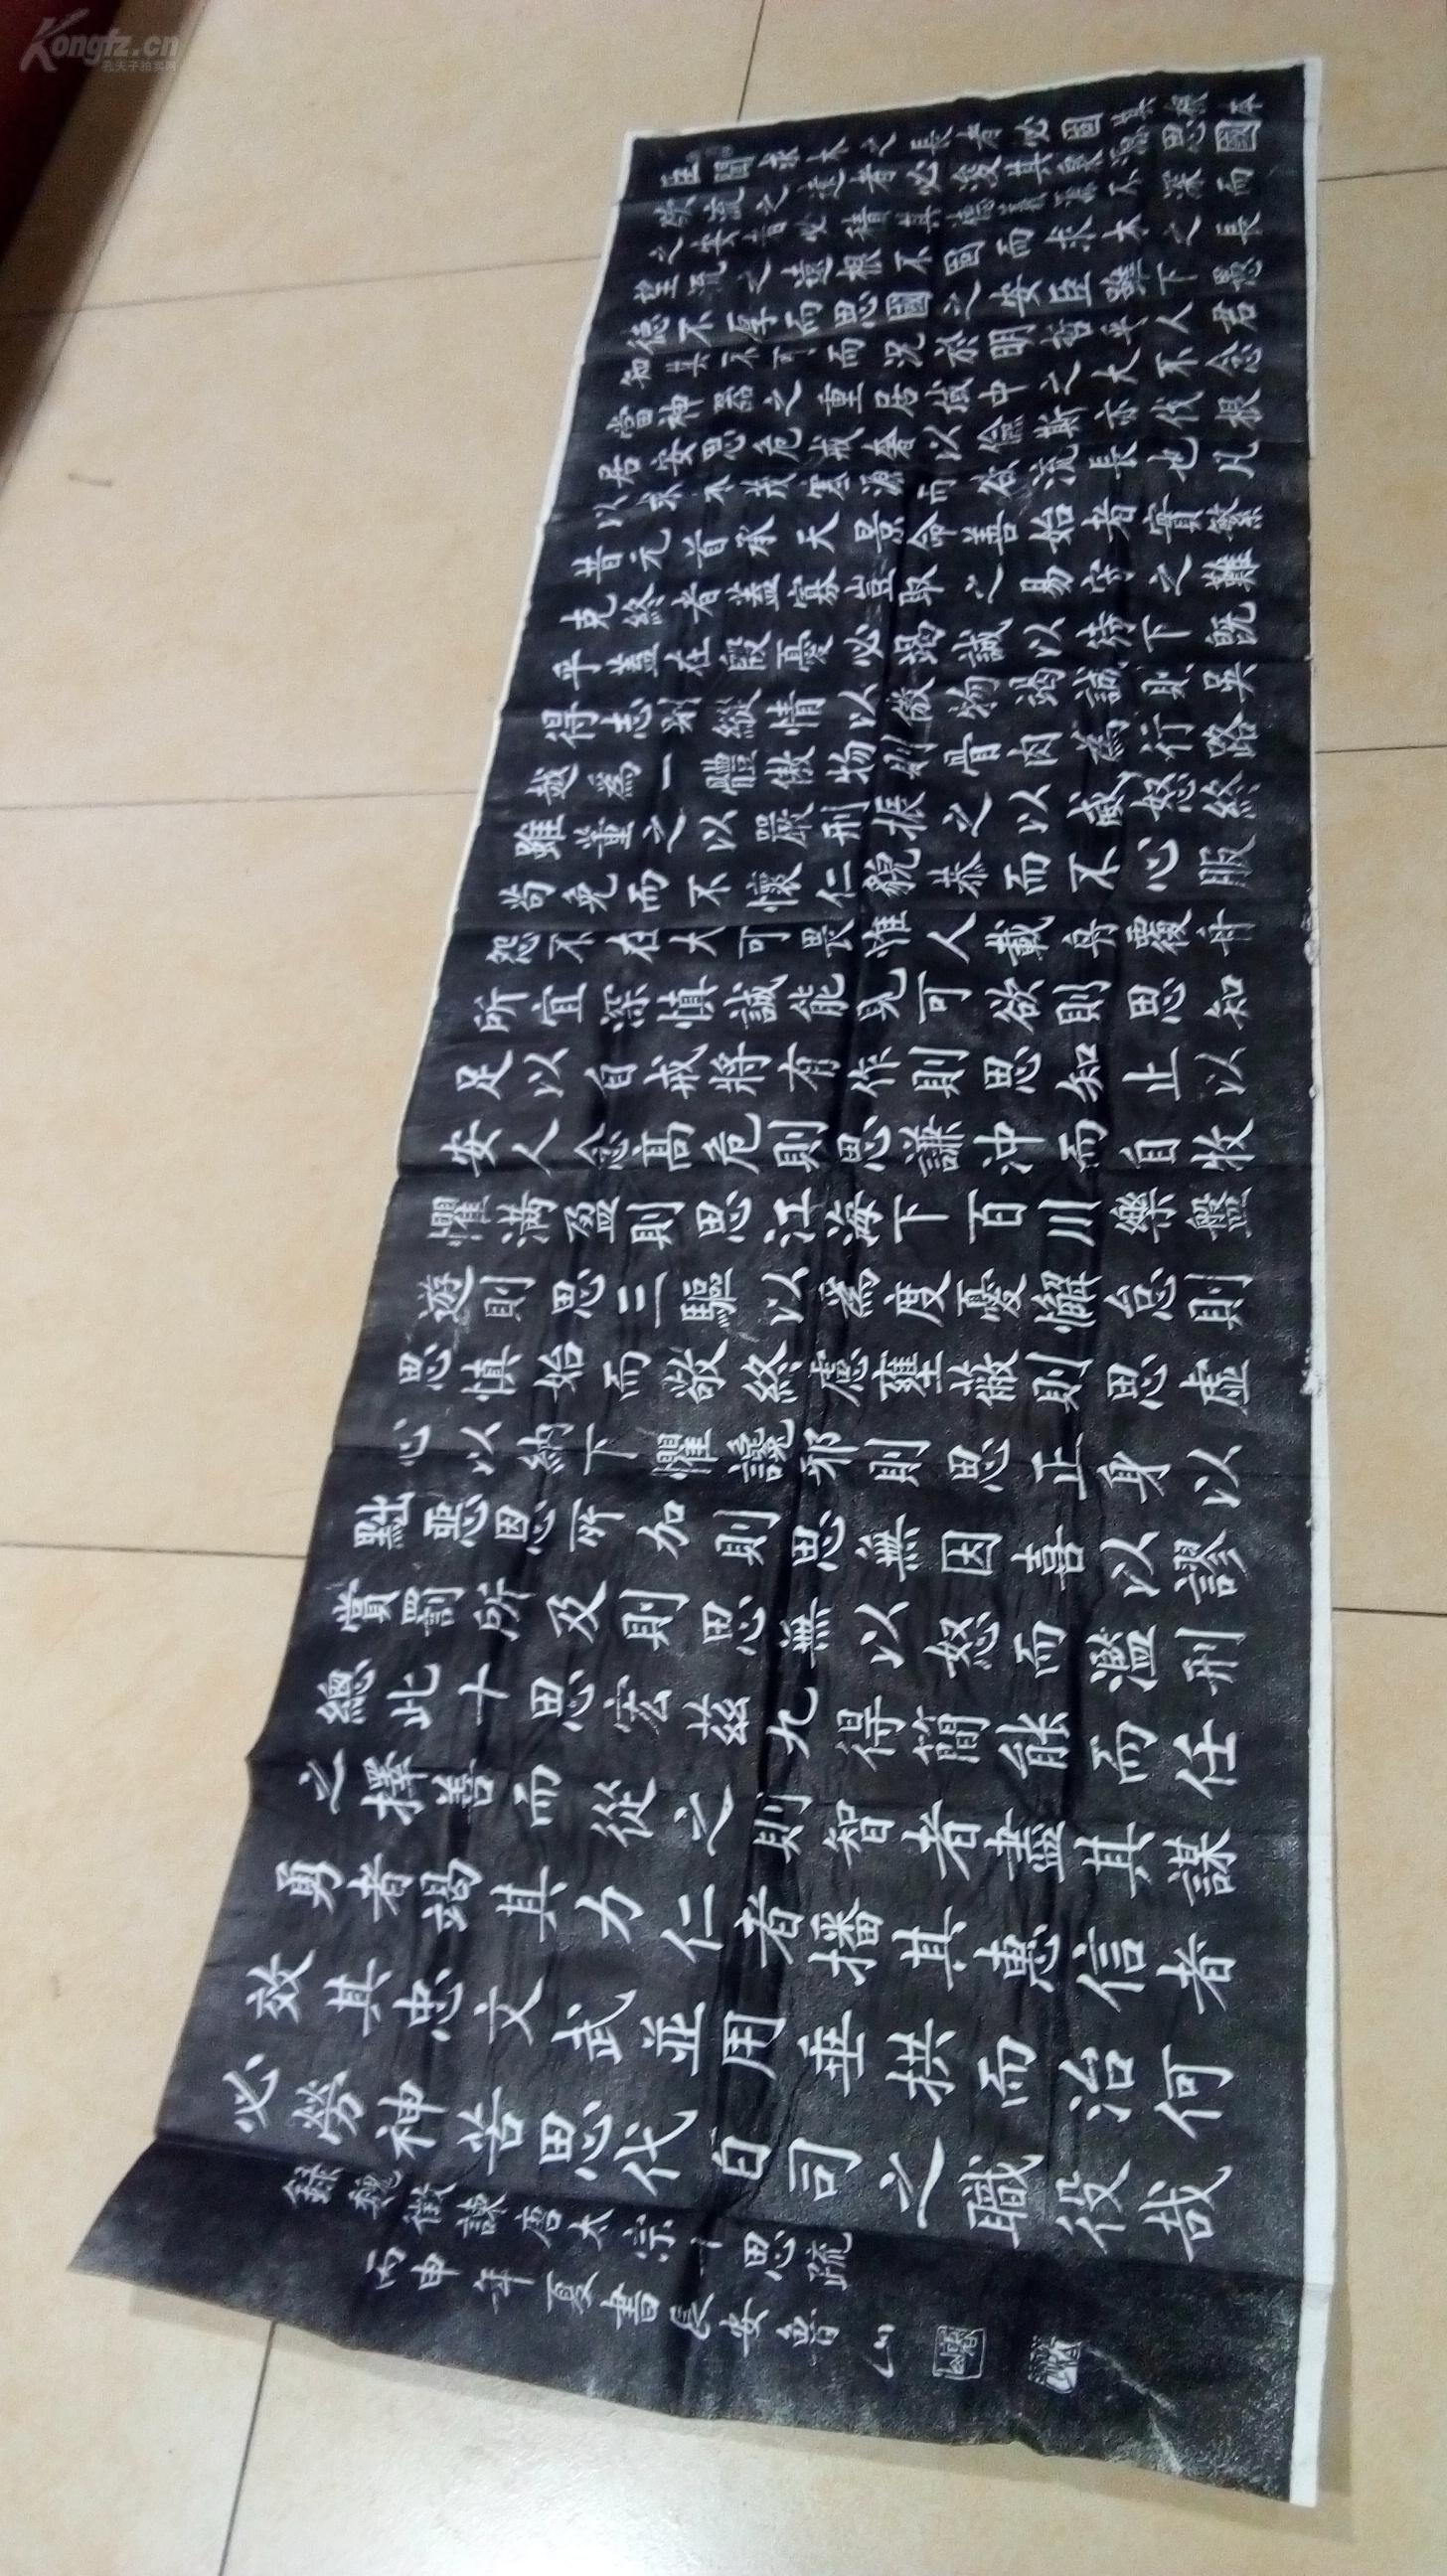 臣聞求木之長者必固其根本
欲流之遠者必浚其泉源思國
之安者必積其德義源不深而
望流之遠根不固而求木之長
德不厚而思國之安臣雖下愚
知其不可而況於明哲乎人君
當神器之重居域中之大不念
居安思危戒奢以儉斯亦伐根
以求木茂塞源而欲流長也凡
昔元首承天景命善始者實繁
克終者蓋寡豈取之易守之難
乎蓋在殷憂必竭誠以待下既
得志則縱情以傲物竭誠則吳
越為一體傲物則骨肉為行路
雖董之以嚴刑振之以威怒終
苟免而不懷仁貌恭而不心服
怨不在大可畏惟人載舟覆舟
所宜深慎誠能見可欲則思知
足以自戒將有作則思知止以
安人念高危則思謙沖而自牧
懼滿盈則思江海下百川樂盤
遊則思三驅以為度憂懈怠則
思慎始而敬終慮壅蔽則思虛
心以納下懼讒邪則思正身以
黜惡恩所加則思無因喜以謬
賞罰所及則思無以怒而濫刑
總此十思宏茲九得簡能而任
之擇善而從之則智者盡其謀
勇者竭其力仁者播其惠信者
效其忠文武並用垂拱而治何
必勞神苦思代百司之職役哉
錄魏徵諫唐太宗十思疏
丙申年夏書長安魯山
Kongfz.cn
孔夫子拍卖网